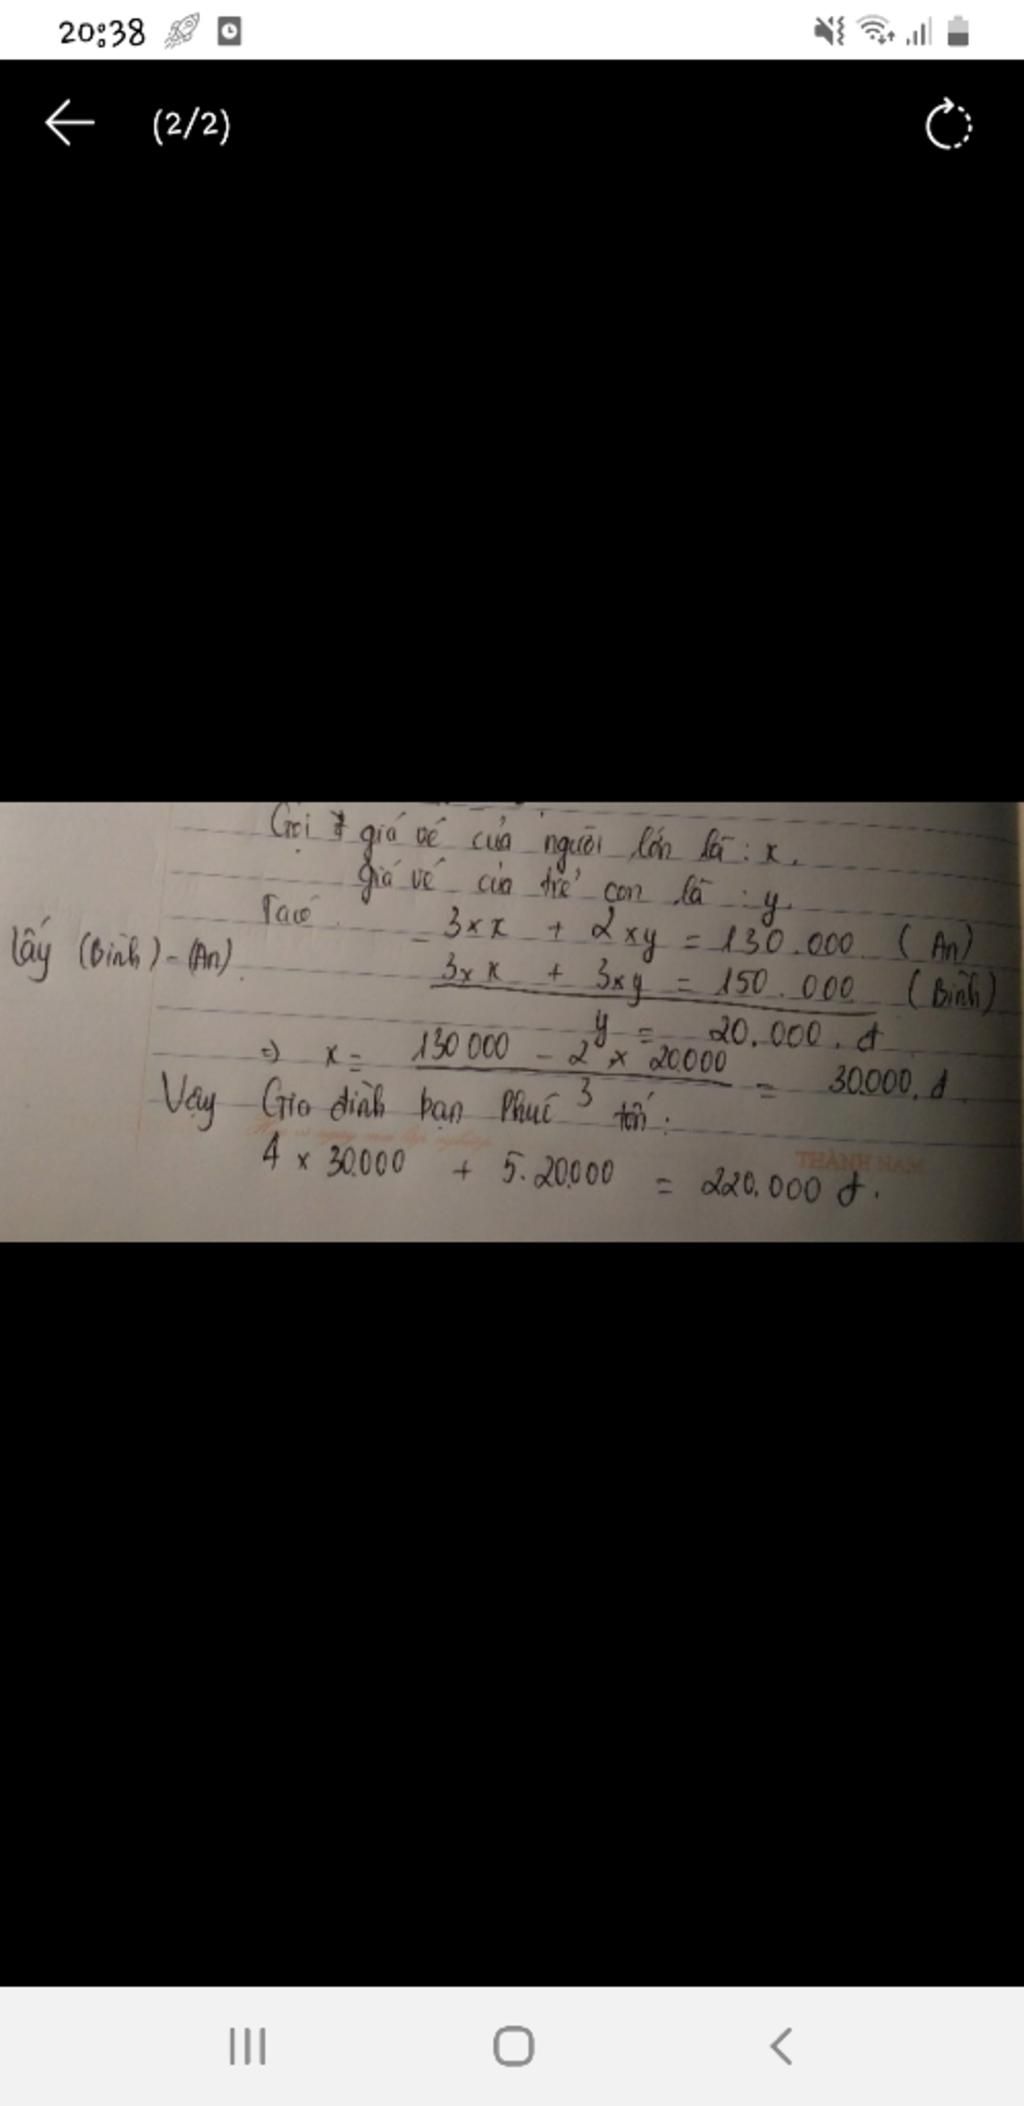 20:38
(2/2)
Gọi giá vé của người lớn là : x.
giá vé của trẻ con là : y.
Ta có
3 x x + 2 x y = 130.000 (An)
lấy (Bình) - (An).
3 x x + 3 x y = 150.000 (Bình)
y = 20.000.đ
=> x = 130 000 - 2 x 20.000 / 3 = 30.000.đ
Vậy Gia đình bạn Phúc tốn :
THÀNH NAM
4 x 30.000 + 5.20.000 = 220.000 đ.